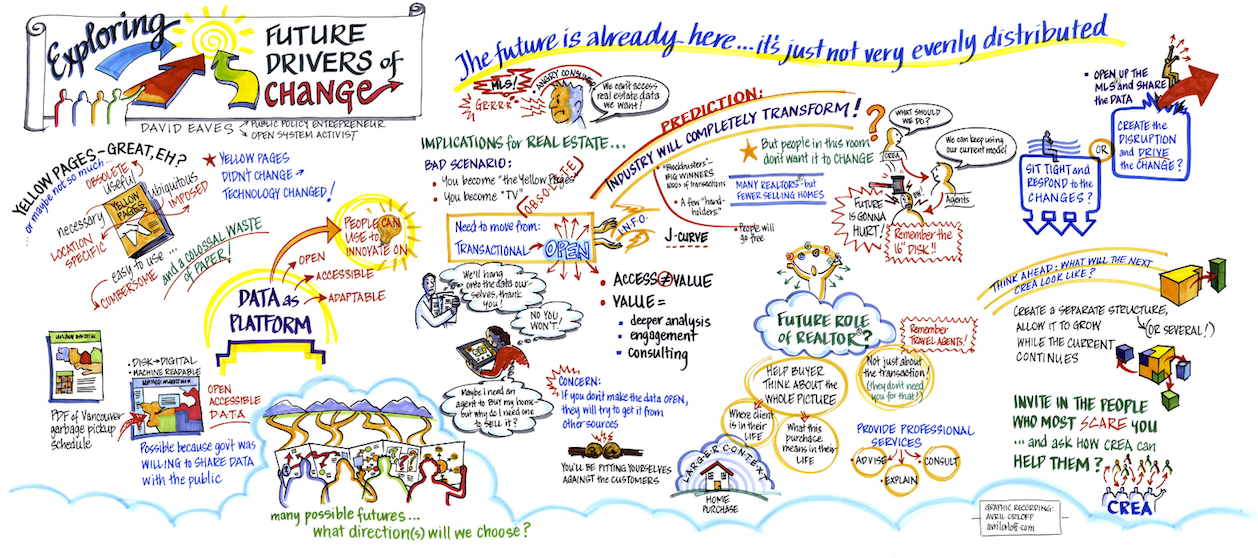 Exploring
FUTURE
DRIVERS of
CHANGE
DAVID EAVES
PUBLIC POLICY ENTREPRENEUR
OPEN SYSTEM ACTIVIST
The future is already here...it's just not very evenly distributed
YELLOW PAGES - GREAT, EH?
...or maybe not so much...
OBSOLETE
useful
ubiquitous
IMPOSED
necessary
LOCATION
SPECIFIC
YELLOW
PAGES
easy to use
CUMBERSOME
...and a COLOSSAL WASTE
of PAPER!
YELLOW PAGES
DIDN'T CHANGE
TECHNOLOGY CHANGED!
PEOPLE CAN
USE to
INNOVATE ON
OPEN
ACCESSIBLE
ADAPTABLE
DATA as
PLATFORM
PDF of Vancouver
garbage pickup
schedule
• DISK → DIGITAL
• MACHINE READABLE
OPEN
ACCESSIBLE
DATA
Possible because gov't was
WILLING to SHARE DATA
with the public
many possible futures...
what direction(s) will we choose?
MLS!
GRRRR
ANGRY CONSUMER
We can't access
real estate data
we want!
IMPLICATIONS for REAL ESTATE...
BAD SCENARIO:
• You become "the Yellow Pages"
• You become "TV"
OBSOLETE
Need to move from:
TRANSACTIONAL
OPEN
INFO.
We'll hang
onto the data our
selves, thank
you!
NO YOU
WON'T!
Maybe I need an
agent to BUY my home -
but why do I need one
to SELL it?
• ACCESS ≠ VALUE
• VALUE =
deeper analysis
engagement
consulting
CONCERN:
If you don't make the data OPEN,
they will try to get it from
other sources
YOU'LL BE PITTING YOURSELVES
AGAINST the CUSTOMERS
PREDICTION:
INDUSTRY WILL COMPLETELY TRANSFORM!
But people in this room
don't want it to CHANGE
• "Blockbusters" -
BIG WINNERS
1000s of transactions
• A few "hand-
holders"
• People will
go free
J-CURVE
MANY REALTORS® but
FEWER SELLING HOMES
?
WHAT SHOULD
WE DO?
CREA
We can keep using
our current model
Agents
OW!
FUTURE
IS GONNA
HURT!
Remember the
16" DISK!!
FUTURE ROLE
of REALTOR®?
Remember
TRAVEL AGENTS!
HELP BUYER
THINK ABOUT the
WHOLE PICTURE
Not just about
the transaction!
(they don't need
you for that!)
Where client
is in their
LIFE
What this
purchase
means in their
LIFE
LARGER CONTEXT
HOME
PURCHASE
PROVIDE PROFESSIONAL
SERVICES
• ADVISE
• CONSULT
• EXPLAIN
• OPEN UP the
MLS® and SHARE
the DATA
SIT TIGHT and
RESPOND to the
CHANGES?
OR
CREATE the
DISRUPTION
and DRIVE
the CHANGE?
THINK AHEAD: WHAT WILL THE NEXT
CREA LOOK LIKE?
CREATE A SEPARATE STRUCTURE,
ALLOW IT to GROW
WHILE THE CURRENT
CONTINUES
(OR SEVERAL!)
INVITE IN THE PEOPLE
WHO MOST SCARE YOU
...and ask HOW CREA can
HELP THEM?
CREA
GRAPHIC RECORDING:
AVRIL ORLOFF
avrilorloff.com